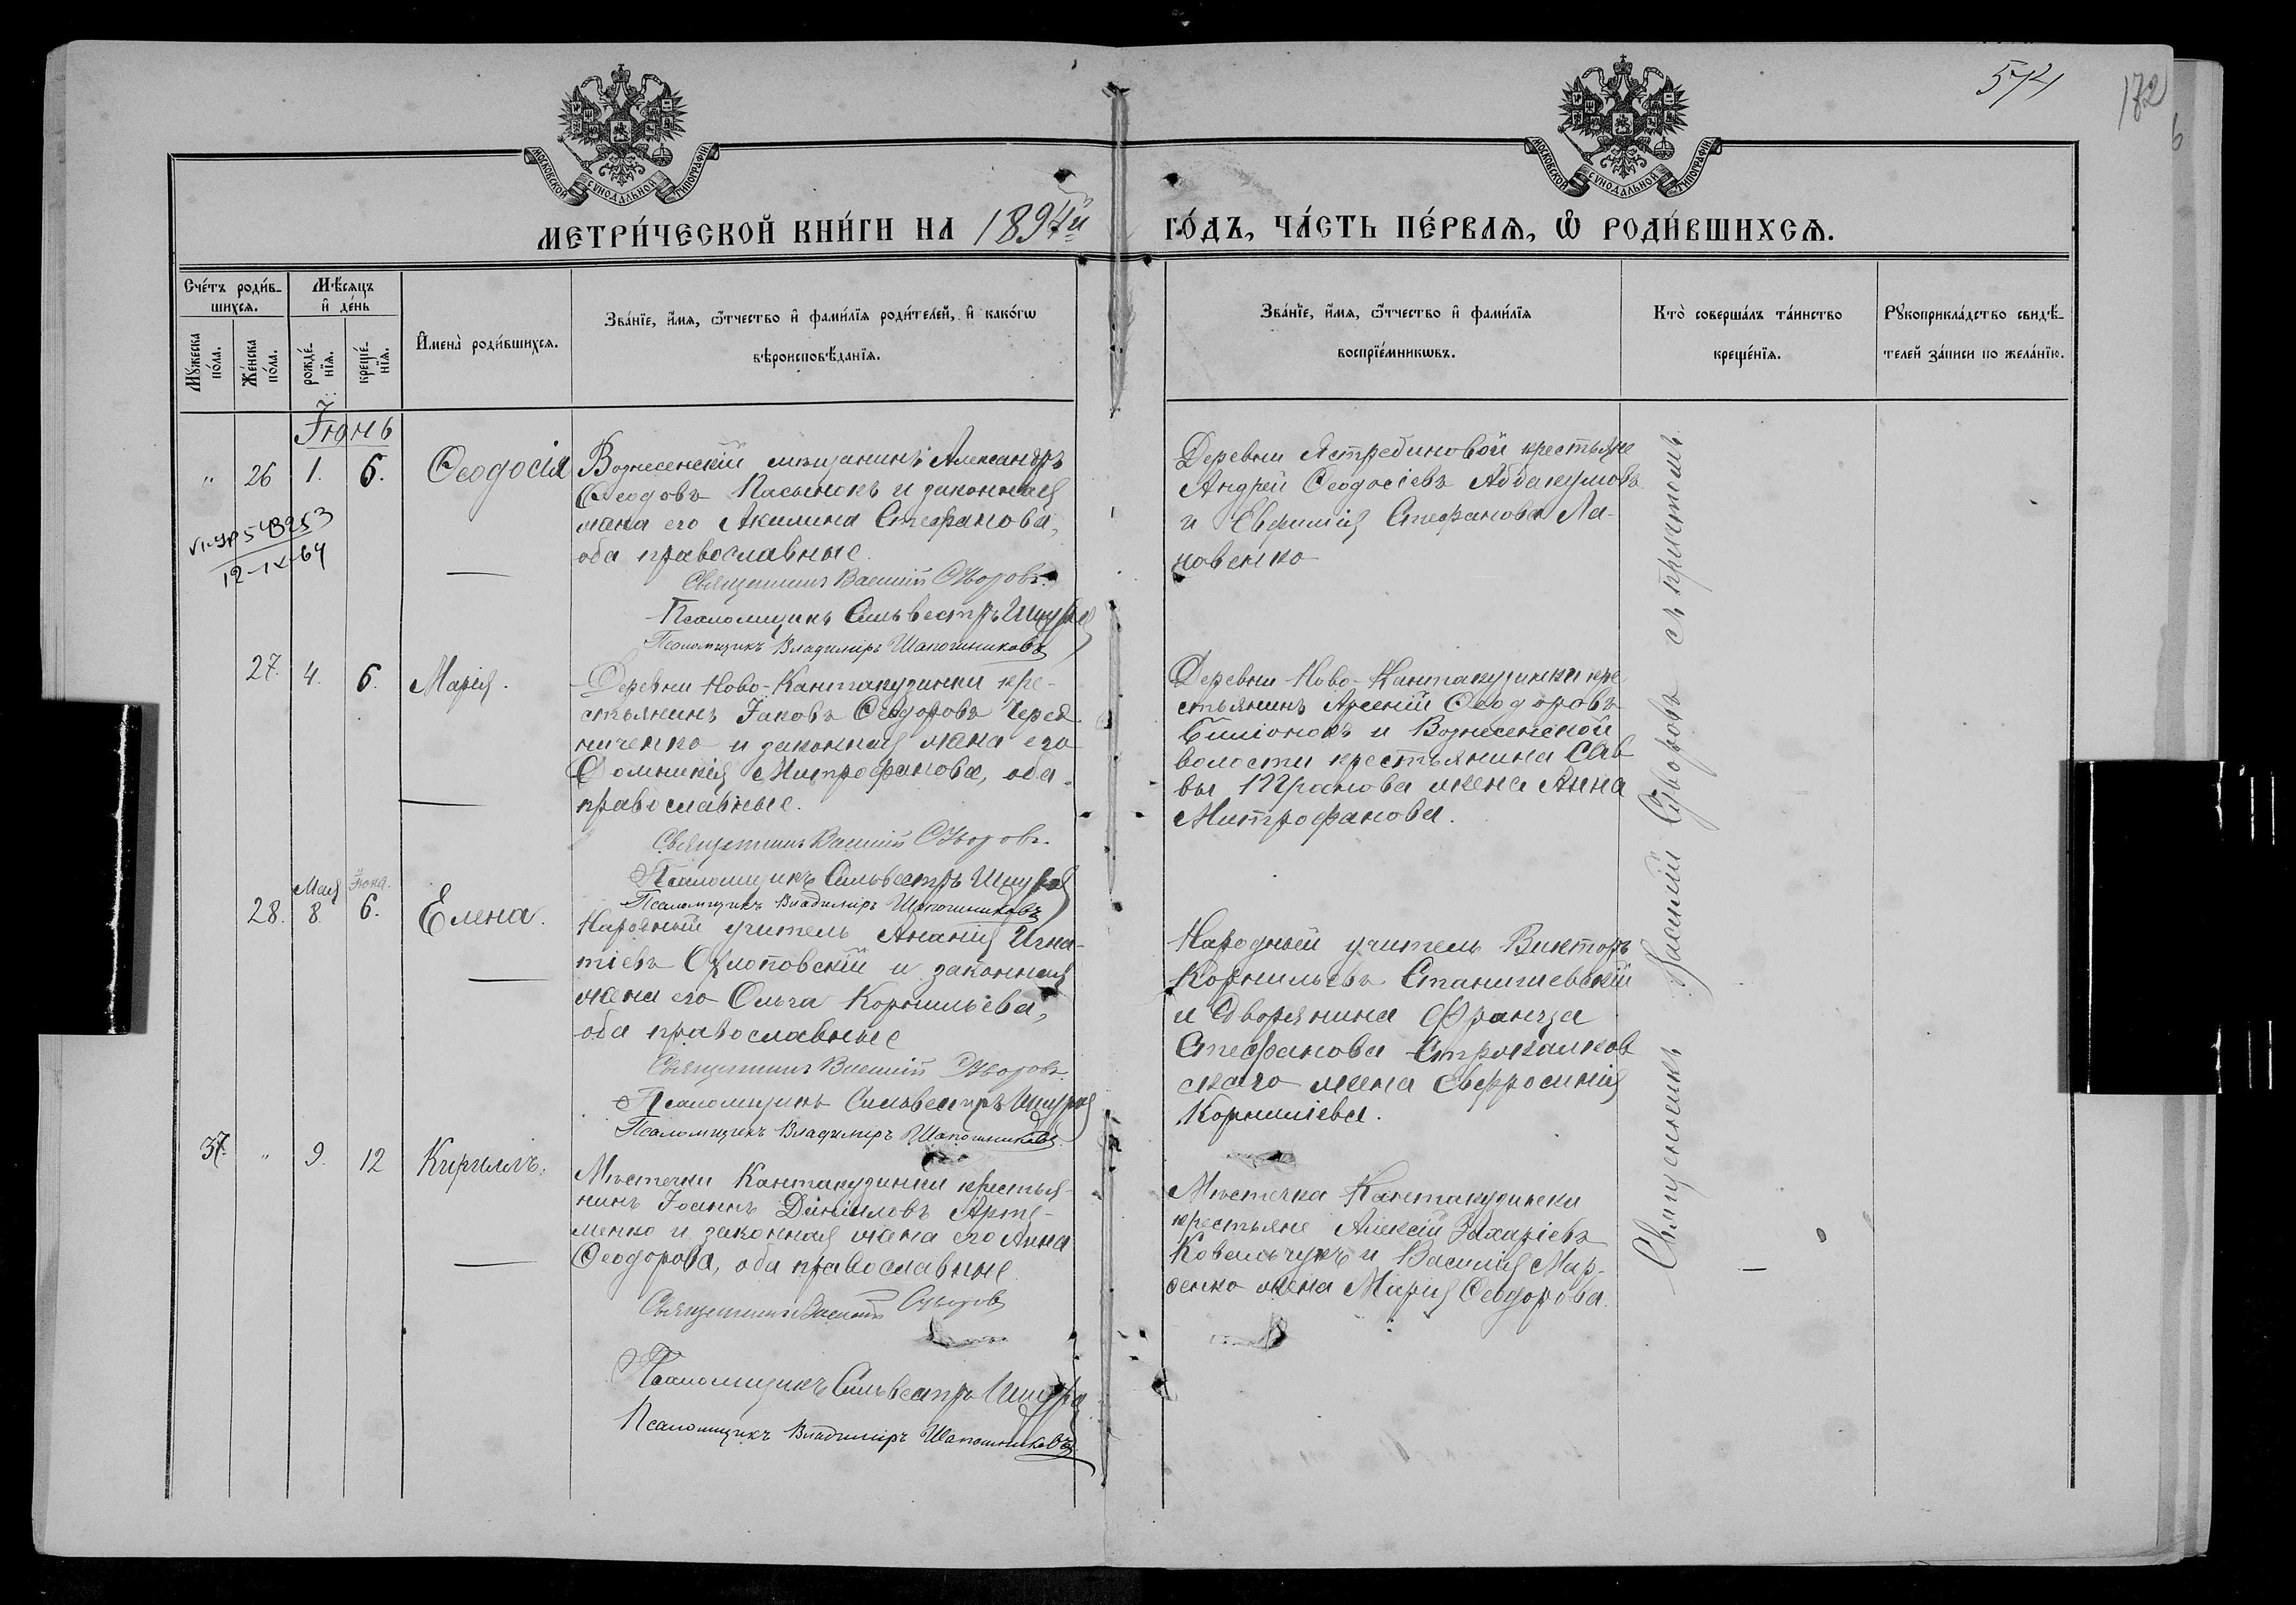 574
172
6
МОСКОВСКОЙ СѴНОДАЛЬНОЙ ТИПОГРАФІИ
МОСКОВСКОЙ СѴНОДАЛЬНОЙ ТИПОГРАФІИ
МЕТРИ́ЧЕСКОЙ КНИ́ГИ НА 1894й ГО́ДЪ, ЧА́СТЬ ПЕ́РВАѦ, Ѡ РОДИ́ВШИХСѦ.
Сче́тъ роди́в-
шихсѧ.
Мꙋжеска
по́ла.
Же́нска
по́ла.
Мѣ́сѧцъ
и҆ де́нь
рожде́-
нїѧ.
креще́-
нїѧ.
И҆мена̀ роди́вшихсѧ.
Зва́нїе, и҆́мѧ, ѻ҆́тчество и҆ фами́лїѧ роди́телей, и҆ како́гѡ
вѣроисповѣ́данїѧ.
Зва́нїе, и҆́мѧ, ѻ҆́тчество и҆ фами́лїѧ
воспрїе́мникѡвъ.
Кто̀ соверша́лъ та́инство
креще́нїѧ.
Рꙋкоприкла́дство свидѣ́-
телей за́писи по жела́нїю.
Іюнь
" 26 1. 6. Ѳеодосія
Вознесенскій мѣщанинъ Александръ
Ѳеодовъ Пасынокъ и законная
жена его Акилина Стефанова,
оба православные.
Священникъ Василій Суворовъ.
Псаломщикъ Сильвестръ Шпура
Псаломщикъ Владиміръ Шапошниковъ
Деревни Ястребиновой крестьяне
Андрей Ѳеодосіевъ Аввакумовъ
и Евфимія Стефанова Ла-
новенко
12-IX-64
27. 4. 6. Марія.
Деревни Ново-Кантакузинки кре-
стьянинъ Іаковъ Ѳеодоровъ Черед-
ниченко и законная жена его
Домникія Митрофанова, оба
православные.
Священникъ Василій Суворовъ.
Псаломщикъ Сильвестръ Шпура
Псаломщикъ Владиміръ Шапошниковъ
Деревни Ново-Кантакузинки кре
стьянинъ Арсеній Ѳеодоровъ
и Вознесенской
волости крестьянина Сав
вы жена Анна
Митрофанова.
Мая Іюня.
28. 8 6. Елена.
Народный учитель Ананія Игна-
тіевъ и законная
жена его Ольга Корнильева,
оба православные
Священникъ Василій Суворовъ.
Псаломщикъ Сильвестръ Шпура
Псаломщикъ Владиміръ Шапошниковъ.
Народный учитель Викторъ
Корнильевъ Станишевскій
и Дворянина Франца
Стефанова
скаго жена Евфросинія
Корниліева.
37. " 9. 12 Кириллъ.
Мѣстечки Кантакузинки крестья-
нинъ Іоаннъ Даніиловъ Арте-
менко и законная жена его Анна
Ѳеодорова, оба православные
Священникъ Василій Суворовъ
Псаломщикъ Сильвестръ Шпура
Псаломщикъ Владиміръ Шапошниковъ.
Мѣстечка Кантакузинки
крестьяне Алексій Захаріевъ
Ковальчукъ и Василія Мар-
ченко жена Марія Ѳеодорова.
Священникъ Василій Суворовъ съ причтомъ.